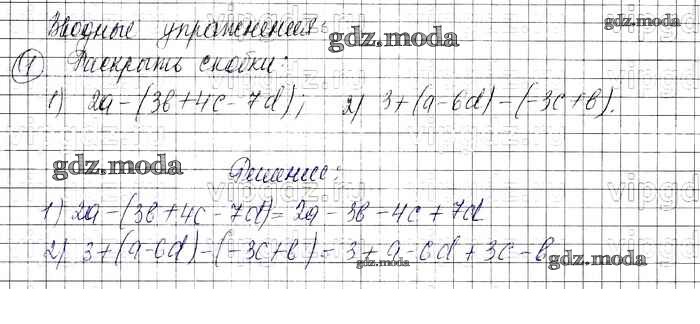 Вводные упражнения:
gdz.moda
gdz.moda
1 Раскрыть скобки:
1) 2a-(3b+4c-7d); 2) 3+(a-6d)-(-3c+b).
gdz.moda
Решение:
1) 2a-(3b+4c-7d)=2a-3b-4c+7d
2) 3+(a-6d)-(-3c+b)=3+a-6d+3c-b
gdz.moda
gdz.moda